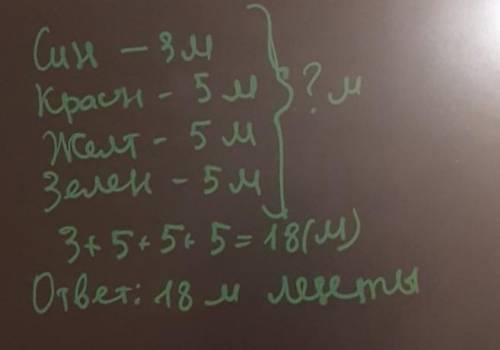 Син - 3 м
Красн - 5 м
Желт - 5 м
Зелен - 5 м
? м
3 + 5 + 5 + 5 = 18 (м)
Ответ: 18 м ленты